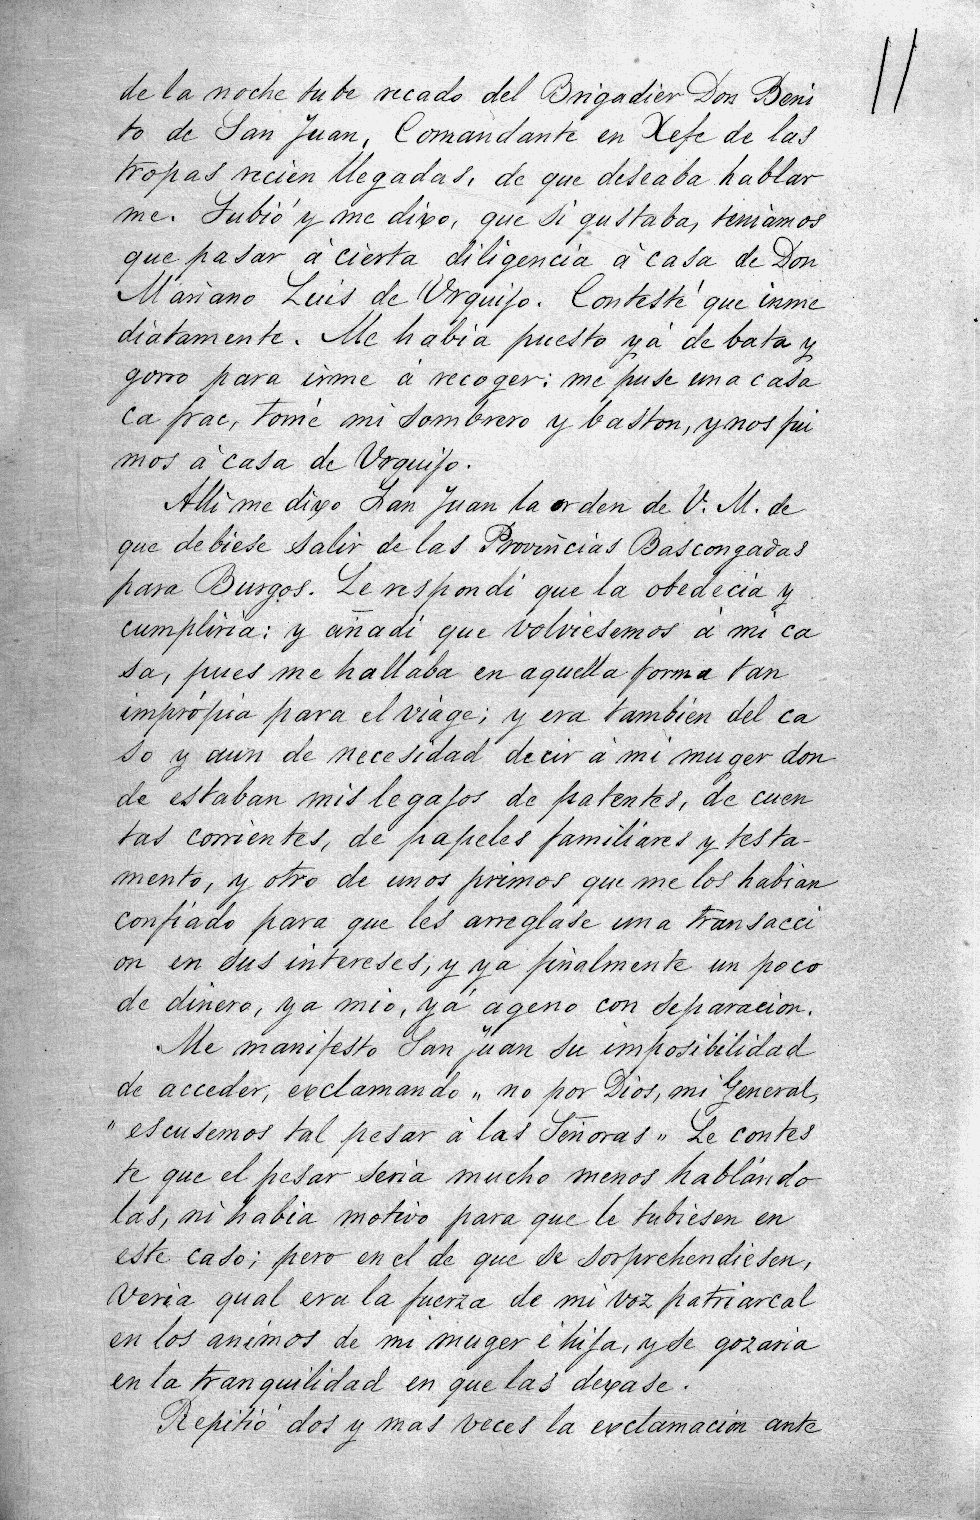 11
de la noche tube recado del Brigadier Don Beni
to de San Juan, Comandante en Xefe de las
tropas recien llegadas, de que deseaba hablar
me. Subió y me dixo, que si gustaba, teniamos
que pasar à cierta diligencia à casa de Don
Mariano Luis de Urquijo. Contesté que inme
diatamente. Me habia puesto yá de bata y
gorro para irme á recoger: me puse una casa
ca frac, tomé mi sombrero y baston, y nos fui
mos à casa de Urquijo.
Alli me dixo San Juan la orden de V. M. de
que debiese salir de las Provincias Bascongadas
para Burgos. Le respondi que la obedecia y
cumpliria: y añadi que volviesemos á mi ca
sa, pues me hallaba en aquella forma tan
imprópia para el viage; y era tambien del ca
so y aun de necesidad decir à mi muger don
de estaban mis legajos de patentes, de cuen
tas corrientes, de papeles familiares y testa-
mento, y otro de unos primos que me los habian
confiado para que les arreglase una transacci
on en sus intereses, y ya finalmente un poco
de dinero, ya mio, yá ageno con separacion.
Me manifesto San Juan su imposibilidad
de acceder, exclamando „ no por Dios, mi General,
" escusemos tal pesar à las Señoras „ Le contes
te que el pesar seria mucho menos hablándo
las, ni habia motivo para que le tubiesen en
este caso; pero en el de que se sorprehendiesen,
veria qual era la fuerza de mi voz patriarcal
en los animos de mi muger é hija, y se gozaria
en la tranquilidad en que las dexase.
Repitió dos y mas veces la exclamacion ante